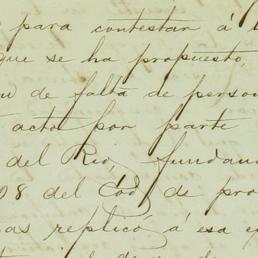 para contestar á
que se ha propuesto,
de falta de person
acto por parte
del Rio, fundan
08 del Cód. de pro
as replicó á esa e